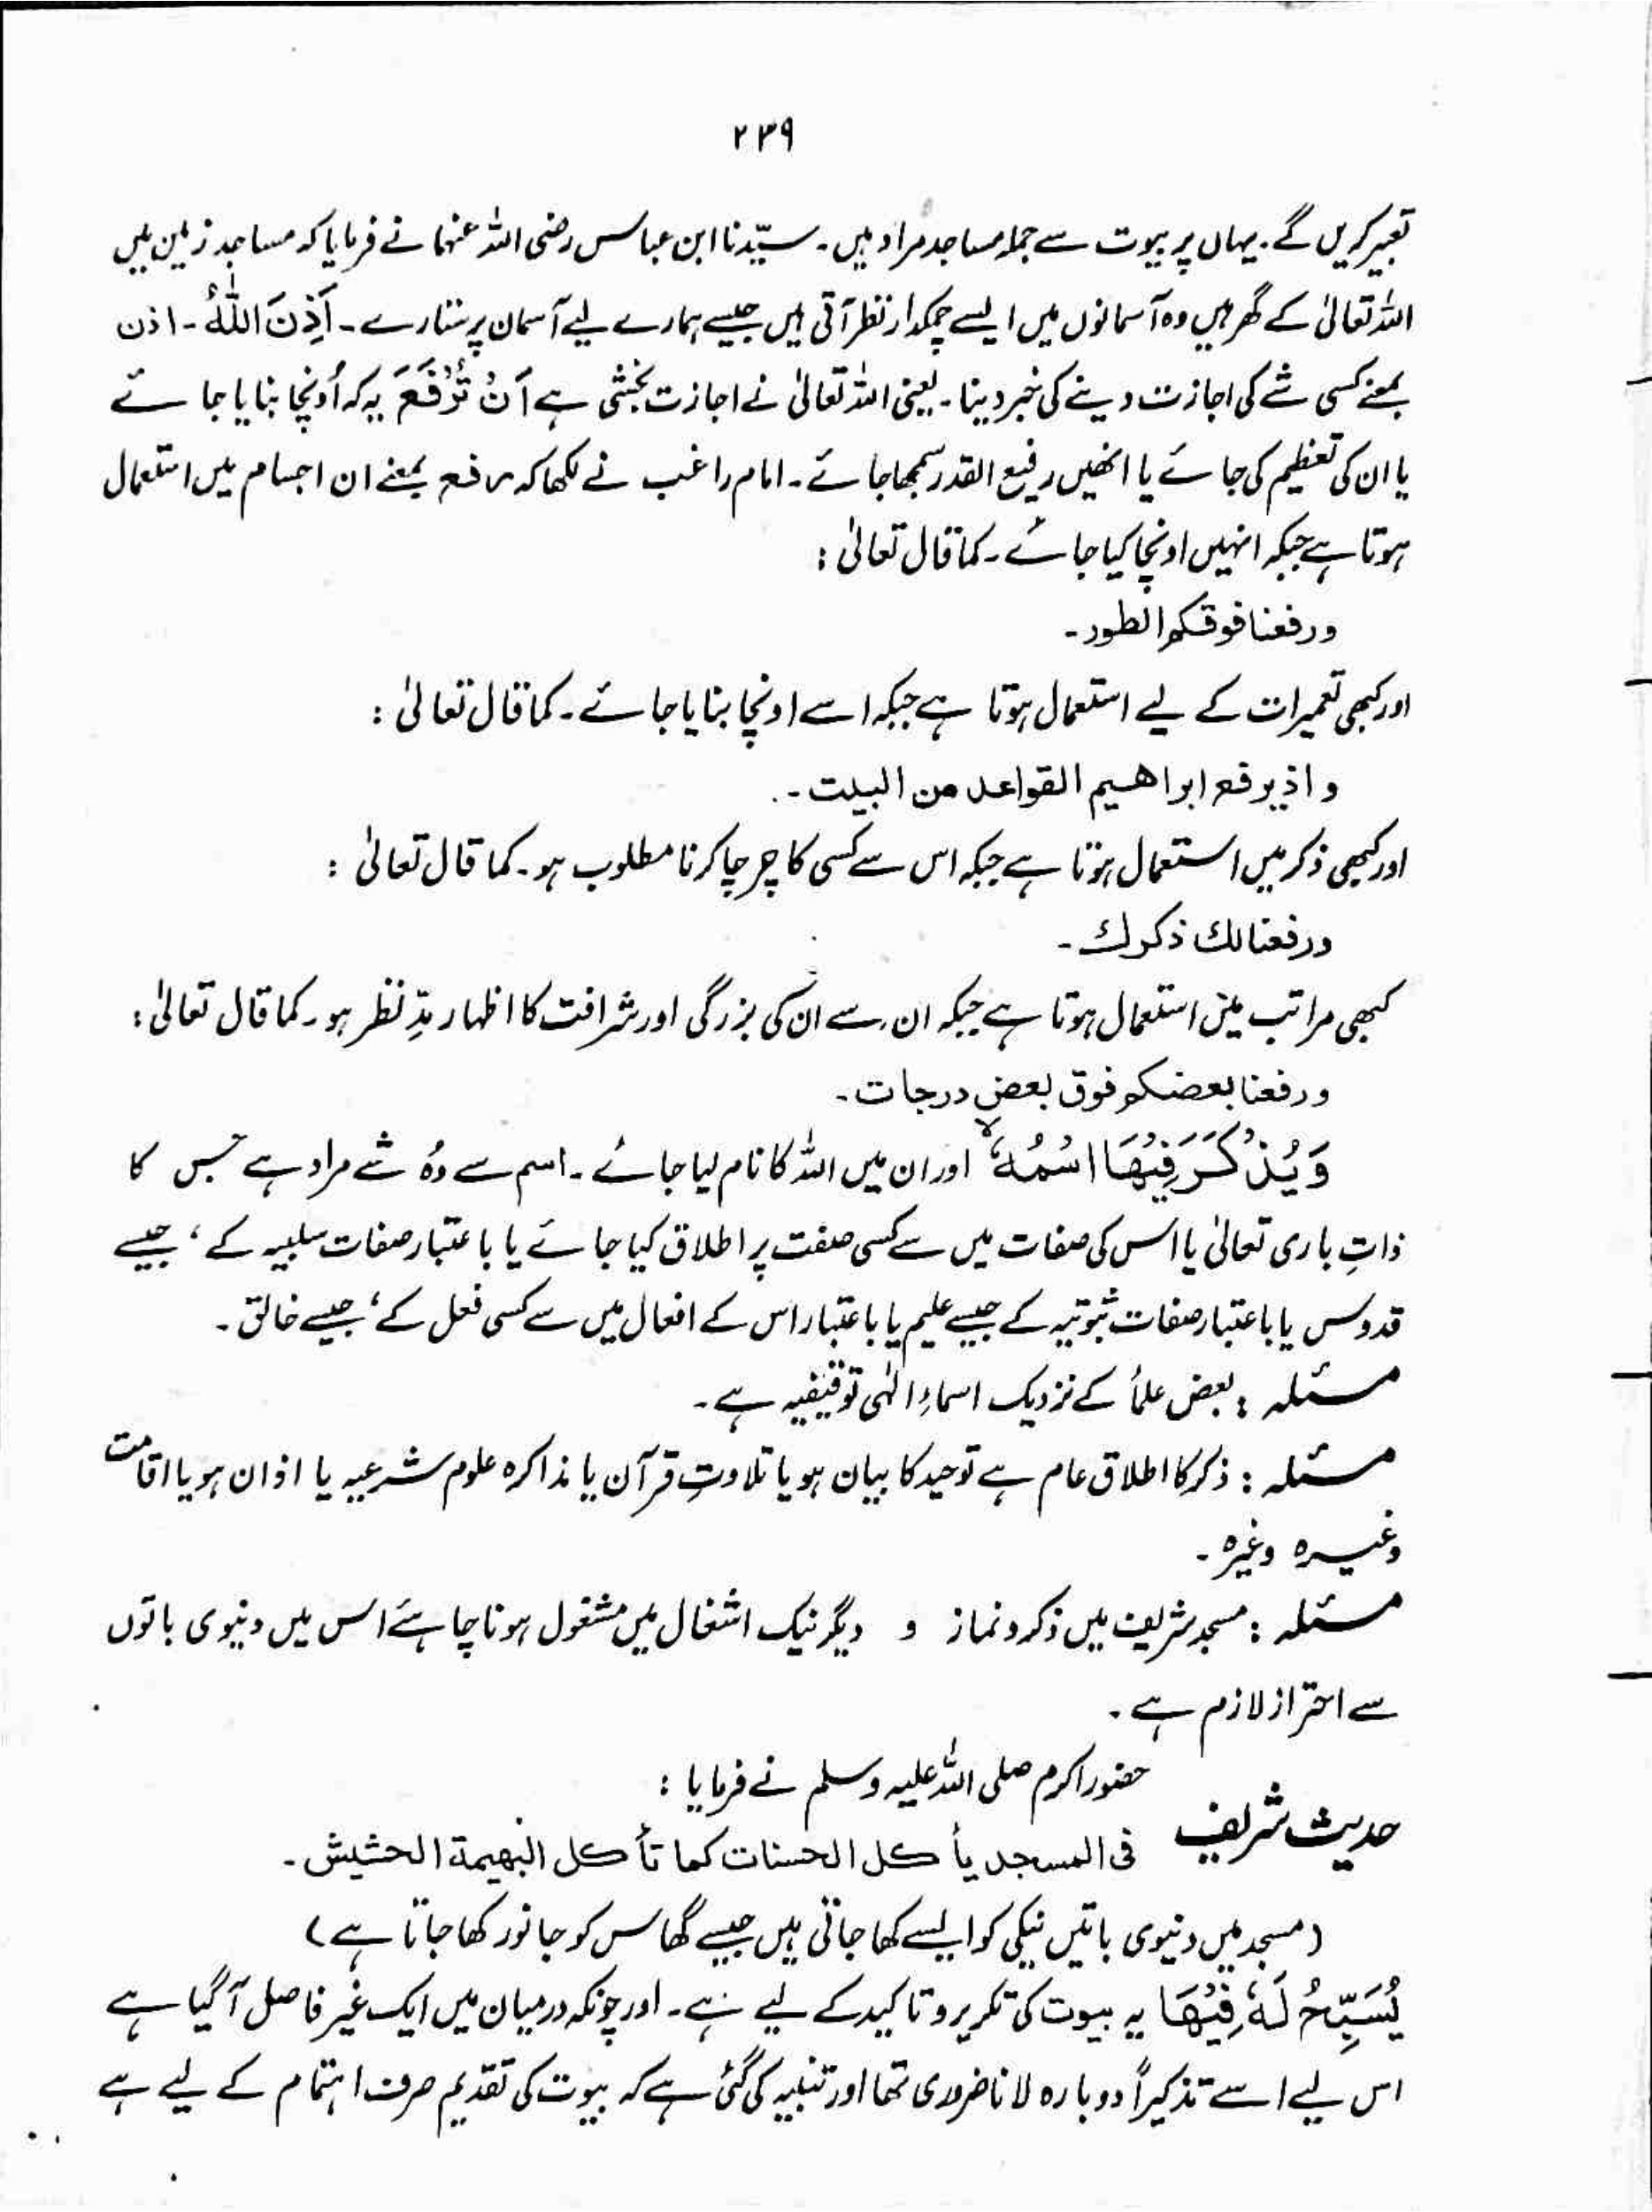 ۲۳۹
تعبیر کریں گے۔ یہاں پر بیوت سے جملہ مساجد مراد ہیں۔ سیّدنا ابن عباس رضی اللہ عنہما نے فرمایا کہ مساجد زمین میں
اللہ تعالیٰ کے گھر ہیں وہ آسمانوں میں ایسے چمکدار نظر آتی ہیں جیسے ہمارے لیے آسمان پر ستارے۔ اَذِنَ اللّٰهُ۔ اذن
بمعنے کسی شے کی اجازت دینے کی خبر دینا۔ یعنی اللہ تعالیٰ نے اجازت بخشی ہے اَنْ تُرْفَعَ یہ کہ اُونچا بنایا جائے
یا ان کی تعظیم کی جائے یا انھیں رفیع القدر سمجھا جائے۔ امام راغب نے لکھا کہ رفع بمعنے ان اجسام میں استعمال
ہوتا ہے جبکہ انہیں اونچا کیا جائے۔ کما قال تعالیٰ :
ورفعنا فوقکم الطور۔
اور کبھی تعمیرات کے لیے استعمال ہوتا ہے جبکہ اسے اونچا بنایا جائے۔ کما قال تعالیٰ :
و اذ یرفع ابراھیم القواعد من البیت۔
اور کبھی ذکر میں استعمال ہوتا ہے جبکہ اس سے کسی کا چرچا کرنا مطلوب ہو۔ کما قال تعالیٰ :
ورفعنا لك ذکرك۔
کبھی مراتب میں استعمال ہوتا ہے جبکہ ان سے ان کی بزرگی اور شرافت کا اظہار مدِّ نظر ہو۔ کما قال تعالیٰ :
ورفعنا بعضکم فوق بعض درجات۔
وَیُذْكَرَ فِیْهَا اسْمُهٗ ۙ اور ان میں اللہ کا نام لیا جائے۔ اسم سے وُہ شے مراد ہے جس کا
ذاتِ باری تعالیٰ یا اس کی صفات میں سے کسی صفت پر اطلاق کیا جائے یا باعتبار صفات سلبیہ کے ، جیسے
قدوس یا باعتبار صفات ثبوتیہ کے جیسے علیم یا باعتبار اس کے افعال میں سے کسی فعل کے ، جیسے خالق۔
مسئلہ : بعض علماء کے نزدیک اسماءِ الٰہی توقیفیہ ہے۔
مسئلہ : ذکر کا اطلاق عام ہے توحید کا بیان ہو یا تلاوتِ قرآن یا مذاکرہ علوم شرعیہ یا اذان ہو یا اقامت
وغیرہ وغیرہ۔
مسئلہ : مسجد شریف میں ذکر و نماز و دیگر نیک اشغال میں مشغول ہونا چاہئے اس میں دنیوی باتوں
سے احتراز لازم ہے۔
حدیث شریف حضور اکرم صلی اللہ علیہ وسلم نے فرمایا :
فی المسجد یأکل الحسنات کما تأکل البھیمۃ الحشیش۔
(مسجد میں دنیوی باتیں نیکی کو ایسے کھا جاتی ہیں جیسے گھاس کو جانور کھا جاتا ہے)
یُسَبِّحُ لَهٗ فِیْهَا یہ بیوت کی تکریر و تاکید کے لیے ہے۔ اور چونکہ درمیان میں ایک غیر فاصل آگیا ہے
اس لیے اسے تذکیراً دوبارہ لانا ضروری تھا اور تنبیہ کی گئی ہے کہ بیوت کی تقدیم صرف اہتمام کے لیے ہے